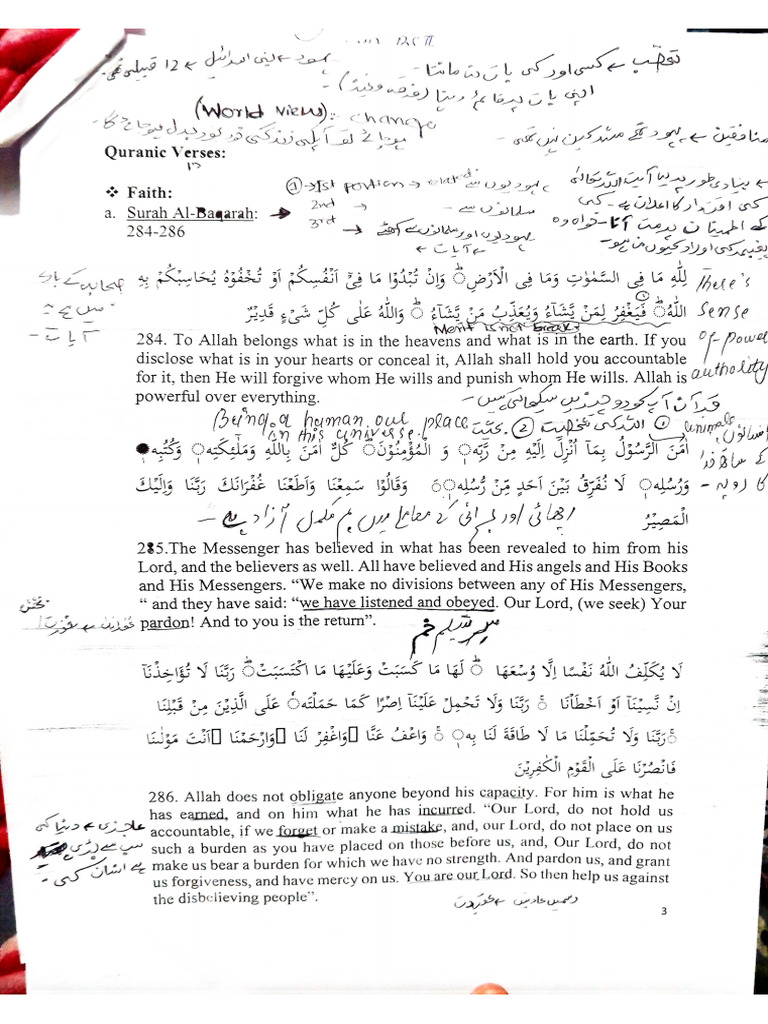 تعصب ← کسی اور کی بات نہ ماننا -
یہود ← بنی اسرائیل ← 12 قبیلے تھے -
اپنی بات پر قائم رہنا
(World view): change
منافقین ← یہود تھے مشرکین نہیں تھے -
Quranic Verses:
❖ Faith:
① → 1st portion → related یہودیوں سے
a. Surah Al-Baqarah:
2nd → مسلمانوں سے -
284-286
3rd → یہودیوں اور مسلمانوں سے اکٹھے
← آیات ←
← بنیادی طور پر یہ آیت اللہ تعالیٰ
کی اقتدار کا اعلان ہے -
لِلّٰهِ مَا فِى السَّمٰوٰتِ وَمَا فِى الْاَرْضِ ؕ وَاِنْ تُبْدُوْا مَا فِىْٓ اَنْفُسِكُمْ اَوْ تُخْفُوْهُ يُحَاسِبْكُمْ بِهِ
اللّٰهُ ؕ فَيَغْفِرُ لِمَنْ يَّشَآءُ وَيُعَذِّبُ مَنْ يَّشَآءُ ؕ وَاللّٰهُ عَلٰى كُلِّ شَىْءٍ قَدِيْرٌ
There's
sense
of power
authority
Merit is not break
284. To Allah belongs what is in the heavens and what is in the earth. If you
disclose what is in your hearts or conceal it, Allah shall hold you accountable
for it, then He will forgive whom He wills and punish whom He wills. Allah is
powerful over everything.
قرآن آپ کو دو چیزیں سکھاتی ہیں -
Being a human our place
in this universe.
① اللہ کی
animals
اٰمَنَ الرَّسُوْلُ بِمَاۤ اُنْزِلَ اِلَيْهِ مِنْ رَّبِّهٖ وَ الْمُؤْمِنُوْنَ ؕ كُلٌّ اٰمَنَ بِاللّٰهِ وَمَلٰٓئِكَتِهٖ وَكُتُبِهٖ
وَرُسُلِهٖ ۚ لَا نُفَرِّقُ بَيْنَ اَحَدٍ مِّنْ رُّسُلِهٖ ۚ وَقَالُوْا سَمِعْنَا وَاَطَعْنَا غُفْرَانَكَ رَبَّنَا وَاِلَيْكَ
الْمَصِيْرُ
اچھائی اور برائی کے معاملے میں ہم مکمل آزاد ہے -
285.The Messenger has believed in what has been revealed to him from his
Lord, and the believers as well. All have believed and His angels and His Books
and His Messengers. “We make no divisions between any of His Messengers,
“ and they have said: “we have listened and obeyed. Our Lord, (we seek) Your
pardon! And to you is the return”.
لَا يُكَلِّفُ اللّٰهُ نَفْسًا اِلَّا وُسْعَهَا ؕ لَهَا مَا كَسَبَتْ وَعَلَيْهَا مَا اكْتَسَبَتْ ؕ رَبَّنَا لَا تُؤَاخِذْنَاۤ
اِنْ نَّسِيْنَاۤ اَوْ اَخْطَاْنَا ۚ رَبَّنَا وَلَا تَحْمِلْ عَلَيْنَاۤ اِصْرًا كَمَا حَمَلْتَهٗ عَلَى الَّذِيْنَ مِنْ قَبْلِنَا
ۚ رَبَّنَا وَلَا تُحَمِّلْنَا مَا لَا طَاقَةَ لَنَا بِهٖ ۚ وَاعْفُ عَنَّا وَاغْفِرْ لَنَا وَارْحَمْنَا اَنْتَ مَوْلٰٮنَا
فَانْصُرْنَا عَلَى الْقَوْمِ الْكٰفِرِيْنَ
286. Allah does not obligate anyone beyond his capacity. For him is what he
has earned, and on him what he has incurred. “Our Lord, do not hold us
accountable, if we forget or make a mistake, and, our Lord, do not place on us
such a burden as you have placed on those before us, and, Our Lord, do not
make us bear a burden for which we have no strength. And pardon us, and grant
us forgiveness, and have mercy on us. You are our Lord. So then help us against
the disbelieving people”.
عاجزی ← دنیا کی
سب سے بڑی
3